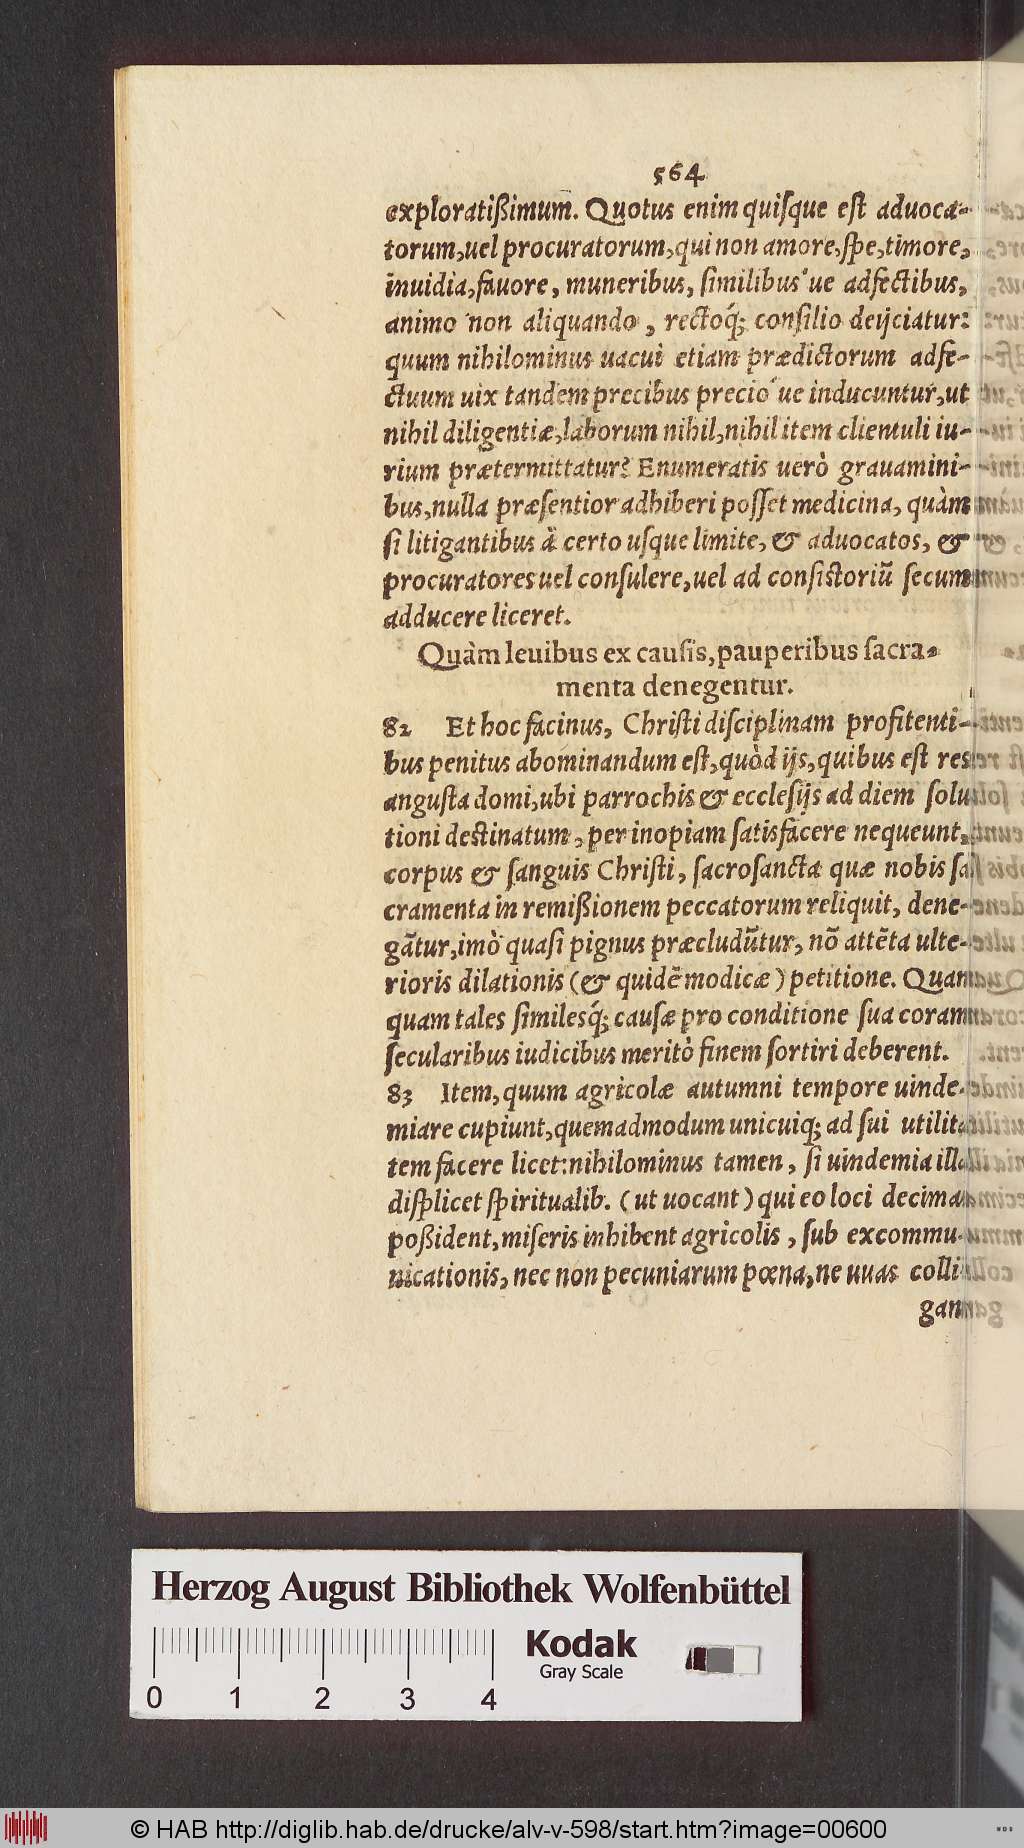 564
exploratißimum. Quotus enim quiſque eſt aduoca-
torum,uel procuratorum,qui non amore,ſpe,timore,
inuidia,fauore, muneribus, ſimilibus'ue adfectibus,
animo non aliquando, rectoq́; conſilio deijciatur:
quum nihilominus uacui etiam prædictorum adfe-
ctuum uix tandem precibus precio'ue inducuntur,ut
nihil diligentiæ,laborum nihil,nihil item clientuli iu-
rium prætermittatur? Enumeratis uerò grauamini-
bus,nulla præſentior adhiberi poſſet medicina, quàm
ſi litigantibus à certo uſque limite, & aduocatos, &
procuratores uel conſulere,uel ad conſiſtoriũ ſecum
adducere liceret.
Quàm leuibus ex cauſis,pauperibus ſacra-
menta denegentur.
82 Et hoc facinus, Chriſti diſciplinam profitenti-
bus penitus abominandum eſt,quòd ijs,quibus eſt res
anguſta domi,ubi parrochis & eccleſijs ad diem ſolu
tioni deſtinatum, per inopiam ſatisfacere nequeunt,
corpus & ſanguis Chriſti, ſacroſancta quæ nobis ſa
cramenta in remißionem peccatorum reliquit, dene-
gãtur,imò quaſi pignus præcludũtur, nõ attẽta ulte-
rioris dilationis (& quidẽ modicæ) petitione. Quam
quam tales ſimilesq́; cauſæ pro conditione ſua coram
ſecularibus iudicibus meritò finem ſortiri deberent.
83 Item,quum agricolæ autumni tempore uinde-
miare cupiunt,quemadmodum unicuiq; ad ſui utilita
tem facere licet:nihilominus tamen, ſi uindemia illa
diſplicet ſpiritualib. (ut uocant) qui eo loci decimas
poßident,miſeris inhibent agricolis, ſub excommu-
nicationis, nec non pecuniarum pœna,ne uuas colli
gan
Herzog August Bibliothek Wolfenbüttel
Kodak
Gray Scale
0 1 2 3 4
© HAB http://diglib.hab.de/drucke/alv-v-598/start.htm?image=00600